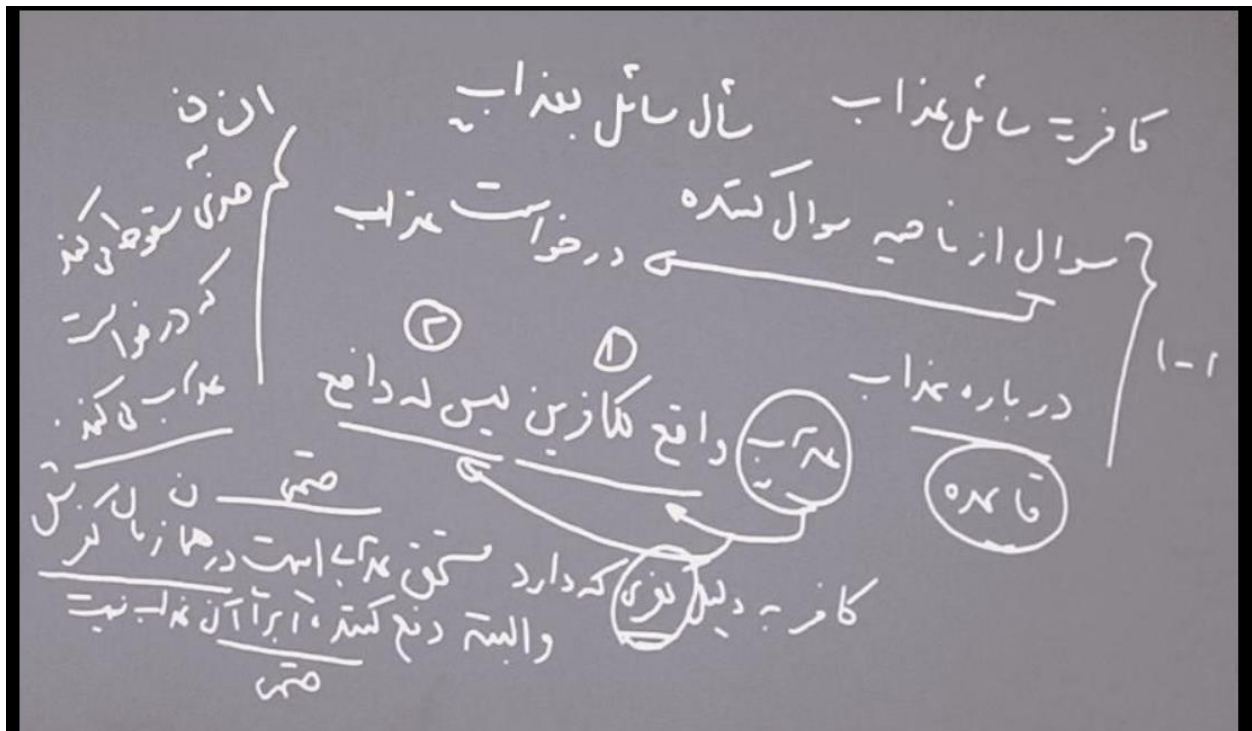 کافر = سائل عذاب    سأل سائل بعذاب
سوال از ناحیه سوال کننده    درخواست عذاب
۱-۱
درباره عذاب
قاعده
عذاب واقع للکافرین لیس له دافع
۱    ۲
کافر به دلیل کفری که دارد مستحق عذاب است در همان زمان کفرش
حتمی
والبته دفع کننده ای برای آن عذاب نیست
حتمی
انسان
به
سقوط می کند
که درخواست
عذاب می کند